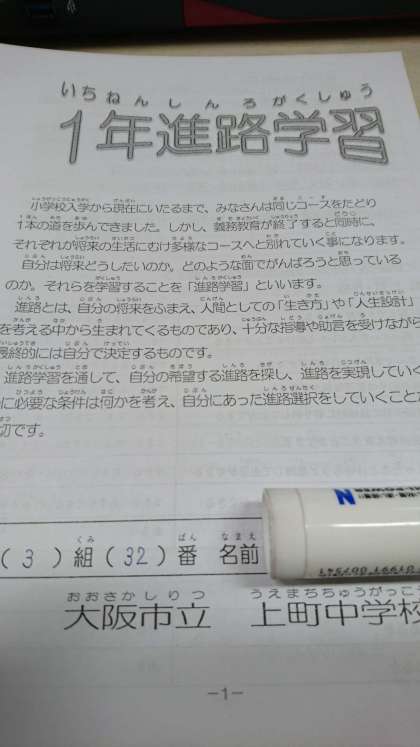 いちねんしんろがくしゅう
1年進路学習
小学校入学から現在にいたるまで、みなさんは同じコースをたどり
1本の道を歩んできました。しかし、義務教育が終了すると同時に、
それぞれが将来の生活にむけ多様なコースへと別れていく事になります。
自分は将来どうしたいのか。どのような面でがんばろうと思っている
のか。それらを学習することを「進路学習」といいます。
進路とは、自分の将来をふまえ、人間としての「生き方」や「人生設計」
を考える中から生まれてくるものであり、十分な指導や助言を受けながら
最終的には自分で決定するものです。
進路学習を通して、自分の希望する進路を探し、進路を実現していく
に必要な条件は何かを考え、自分にあった進路選択をしていくことが
切です。
くみ ばん なまえ
(3)組(32)番 名前
おおさかしりつ うえまちちゅうがっこう
大阪市立 上町中学校
-1-